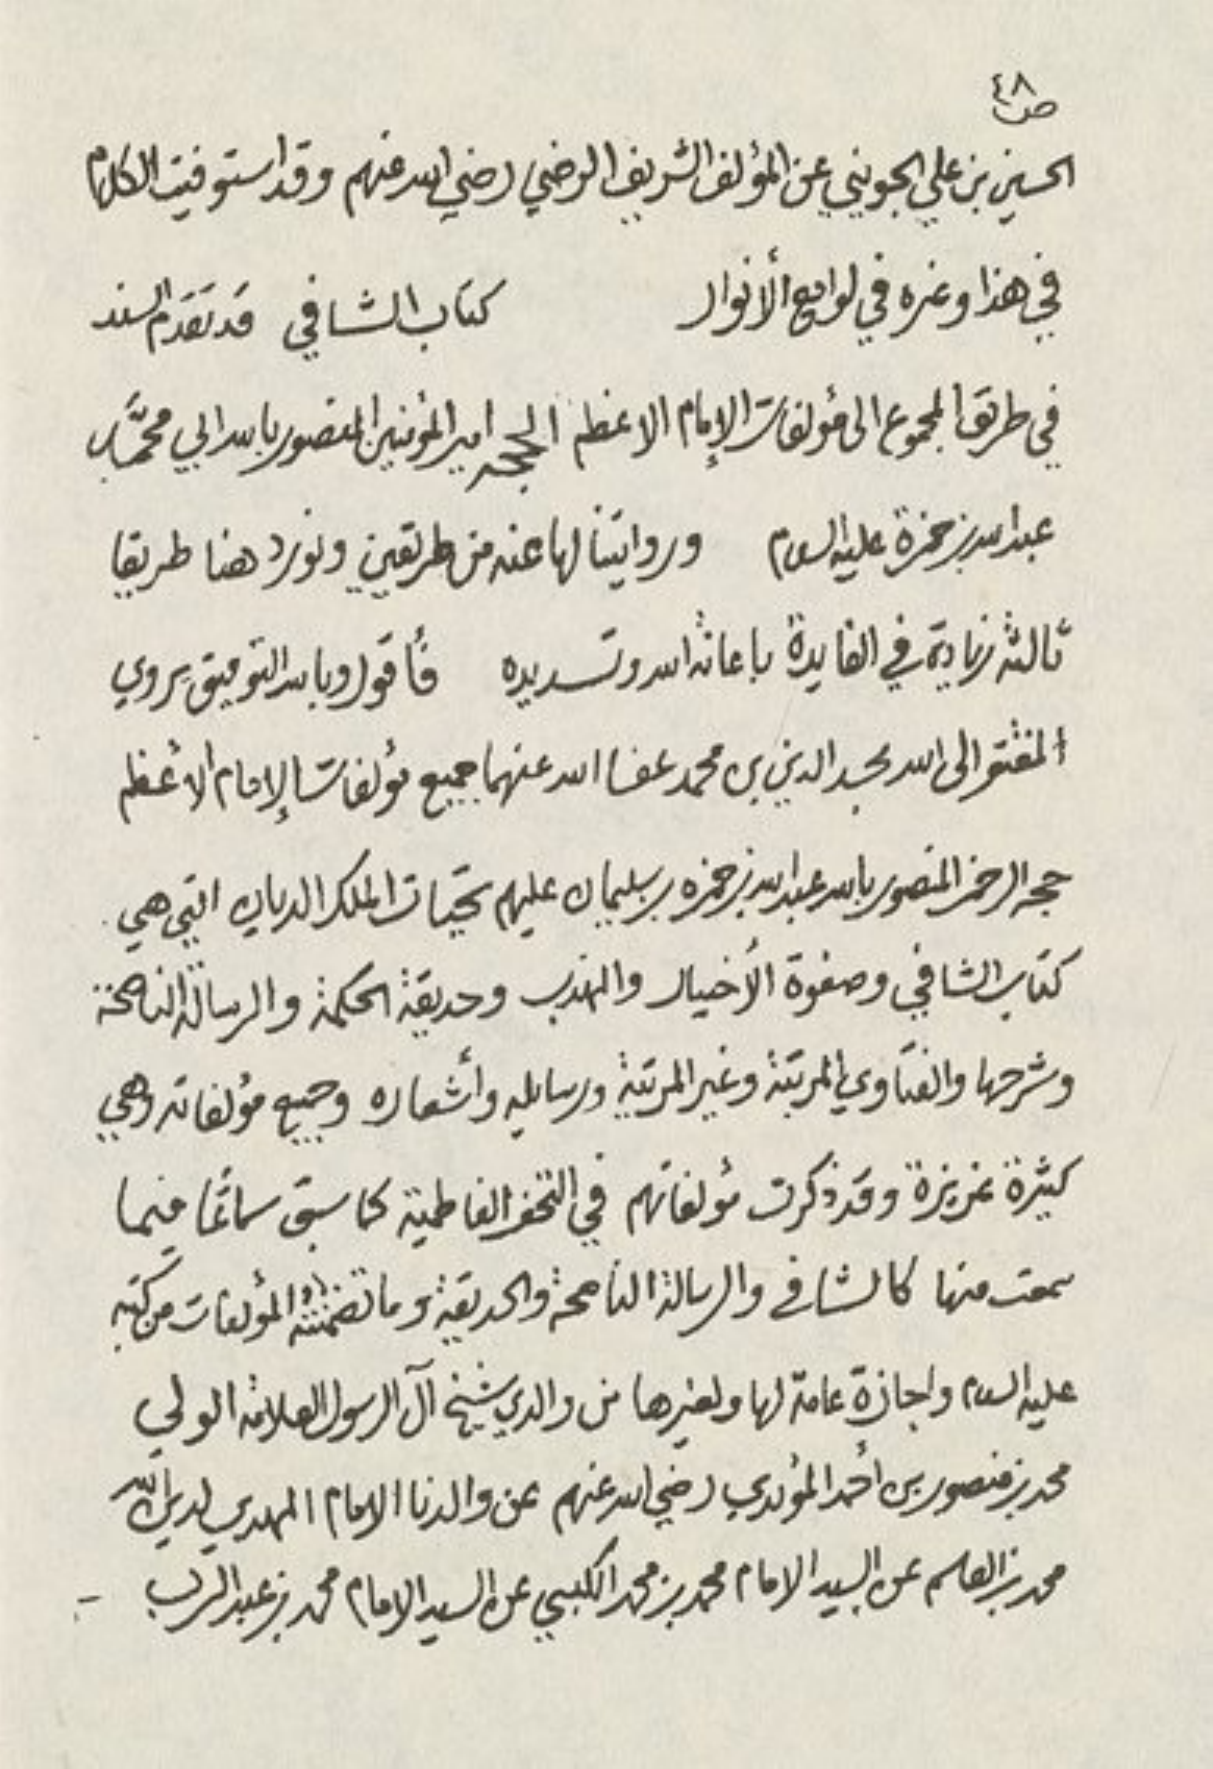 ص ٤٨
الحسين بن علي الجويني عن المؤلف الشريف الرضي رضي الله عنهم وقد استوفيت الكلام
في هذا وغيره في لوامع الأنوار كتاب الشافي قد تقدم السند
في طريق المجموع الى مؤلفات الإمام الاعظم الحجه امير المؤمنين المنصور بالله ابي محمد
عبدالله بن حمزة عليه السلام وروايتنا لها عنه من طريقين ونورد هنا طريقا
ثالثة زيادة في الفايدة باعانة الله وتسديده فأقول وبالله التوفيق يروي
المفتقر الى الله مجد الدين بن محمد عفا الله عنهما جميع مؤلفات الإمام الأعظم
حجه الرحمن المنصور بالله عبدالله بن حمزه بن سليمان عليهم تحيات الملك الديان التي هي
كتاب الشافي وصفوة الأخيار والمهذب وحديقة الحكمة والرسالة الناصحة
وشرحها والفتاوي المرتبة وغير المرتبة ورسايله وأشعاره وجميع مؤلفاته وهي
كثيرة غزيزة وقد ذكرت مؤلفاتهم في التحف الفاطمية كما سبق سماعًا فيما
سمعت منها كالشافي والرسالة الناصحة والحديقة وما تضمنته المؤلفات من كتبه
عليه السلام واجازة عامة لها ولغيرها من والدي شيخ آل الرسول العلامة الولي
محمد بن منصور بن أحمد المؤيدي رضي الله عنهم عن والدنا الامام المهدي لدين الله
محمد بن القاسم عن السيد الامام محمد بن محمد الكبسي عن السيد الامام محمد بن عبدالرب